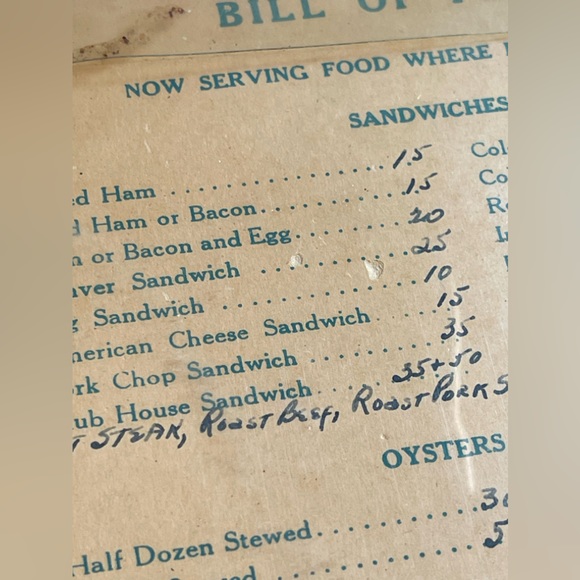 BILL OF
NOW SERVING FOOD WHERE
SANDWICHES
d Ham . . . . . . . . . . . . . . . . . 15 Col
Ham or Bacon . . . . . . . . . . . . 15 Co
n or Bacon and Egg . . . . . . . . . . 20 R
ver Sandwich . . . . . . . . . . . . 25
g Sandwich . . . . . . . . . . . . . . 10
merican Cheese Sandwich . . . . . 15
rk Chop Sandwich . . . . . . . . . . 35
ub House Sandwich . . . . . 35+50
T STEAK, ROAST BEEF, ROAST PORK S
OYSTERS
Half Dozen Stewed . . . . . . . . . . . . 3
ed . . . . . . . . . . . . . . . . 5